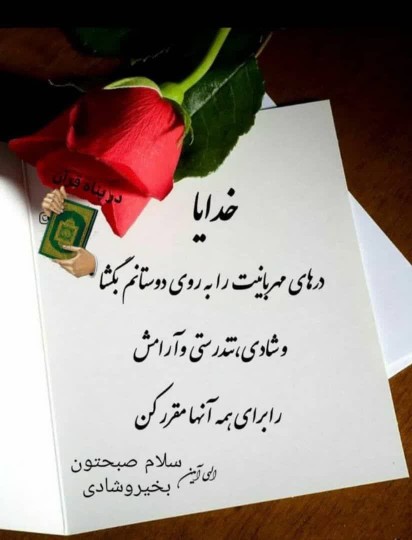 در پناه قرآن
خدایا
درهای مهربانیت را به روی دوستانم بگشا
و شادی، تندرستی و آرامش
را برای همه آنها مقرر کن
الهی آمین
سلام صبحتون
بخیروشادی